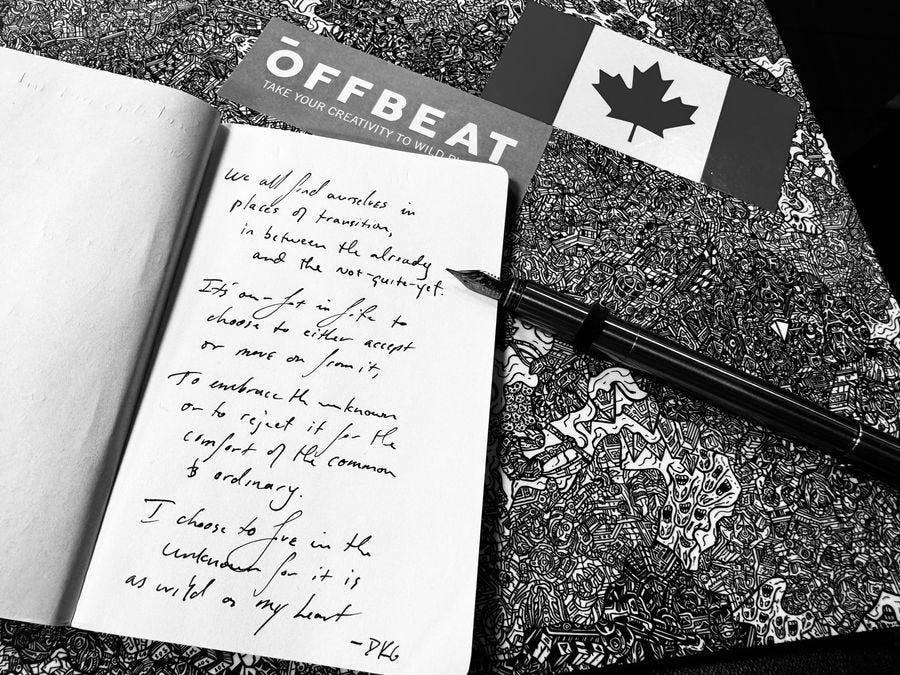 ŌFFBEAT
TAKE YOUR CREATIVITY TO WILD
We all find ourselves in
places of transition,
in between the already
and the not-quite-yet.
It's our lot in life to
choose to either accept
or move on from it,
To embrace the unknown
or to reject it for the
comfort of the common
& ordinary.
I choose to live in the
unknown for it is
as wild as my heart
-DKG